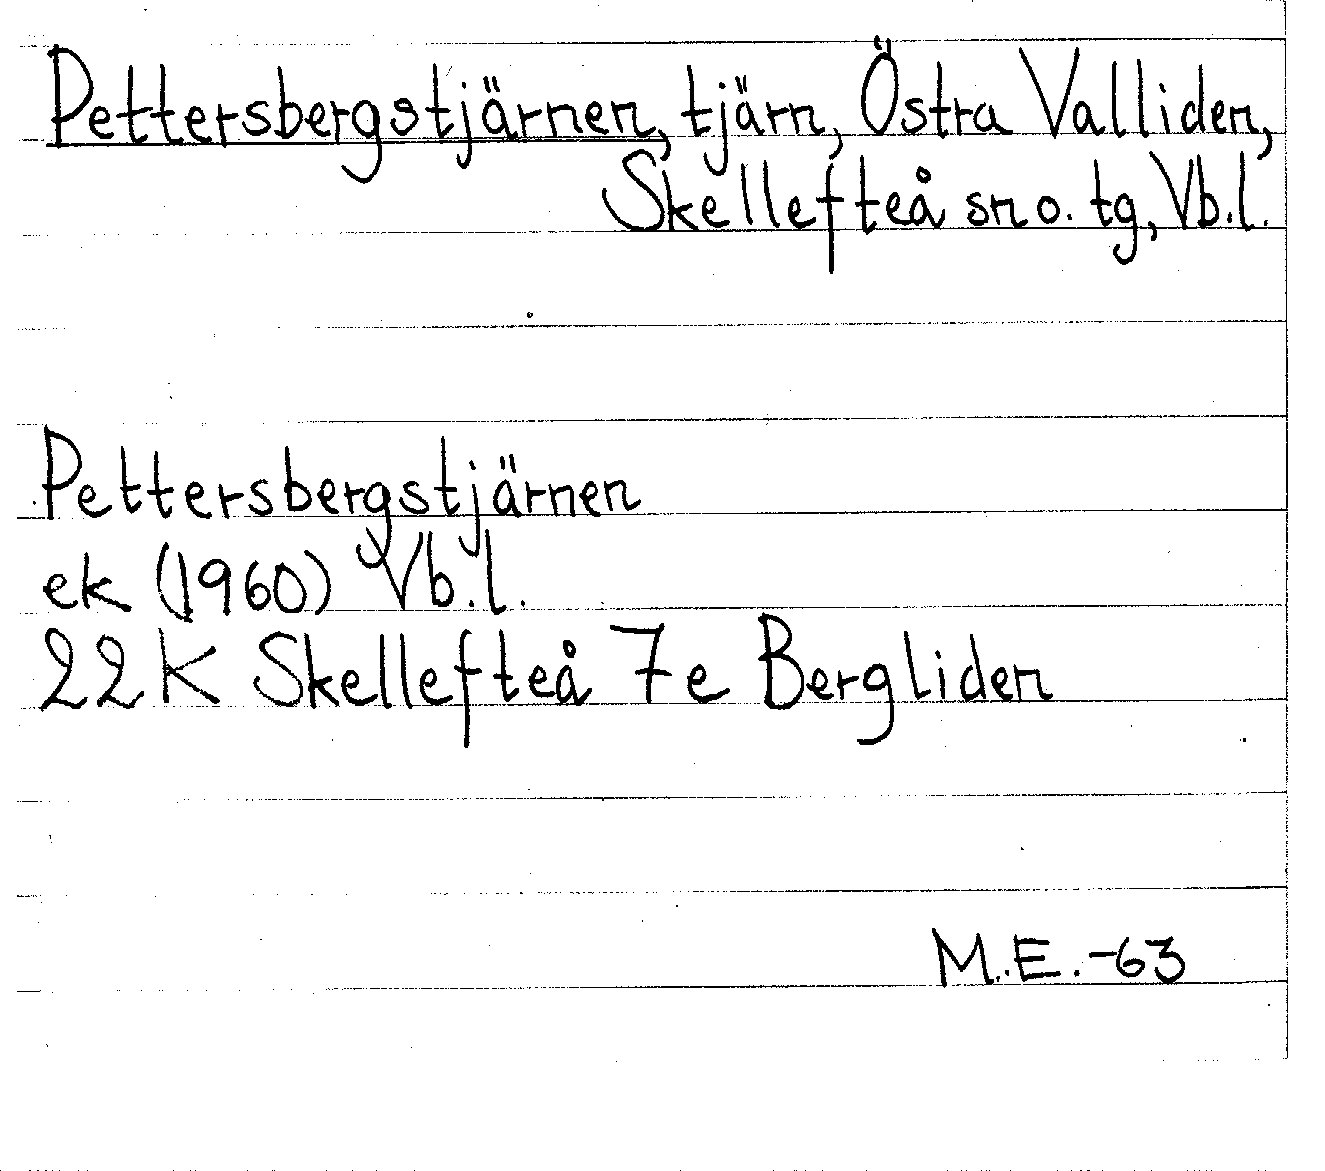 Pettersbergstjärnen, tjärn, Östra Valliden,
Skellefteå sn o. tg, Vb.l.
Pettersbergstjärnen
ek (1960) Vb.l.
22K Skellefteå 7e Bergliden
M.E.-63